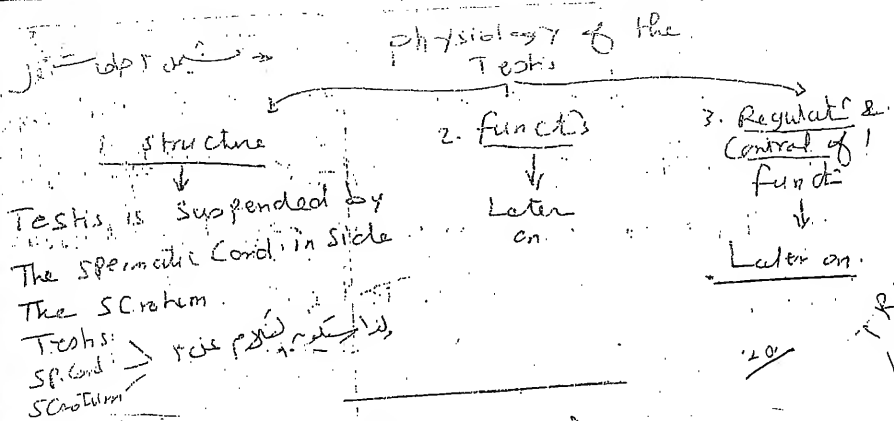 physiology of the
Testis
← تشمل ٣ حاجات
1. Structure
Testis is Suspended by
The Spermatic Cord in Side
The SCrotum.
Testis
Sp. Cord
SCrotum
ولذا سيكون الكلام عن ٣
2. functs
Later
on
3. Regulat &
Control of !
funct
Later on.